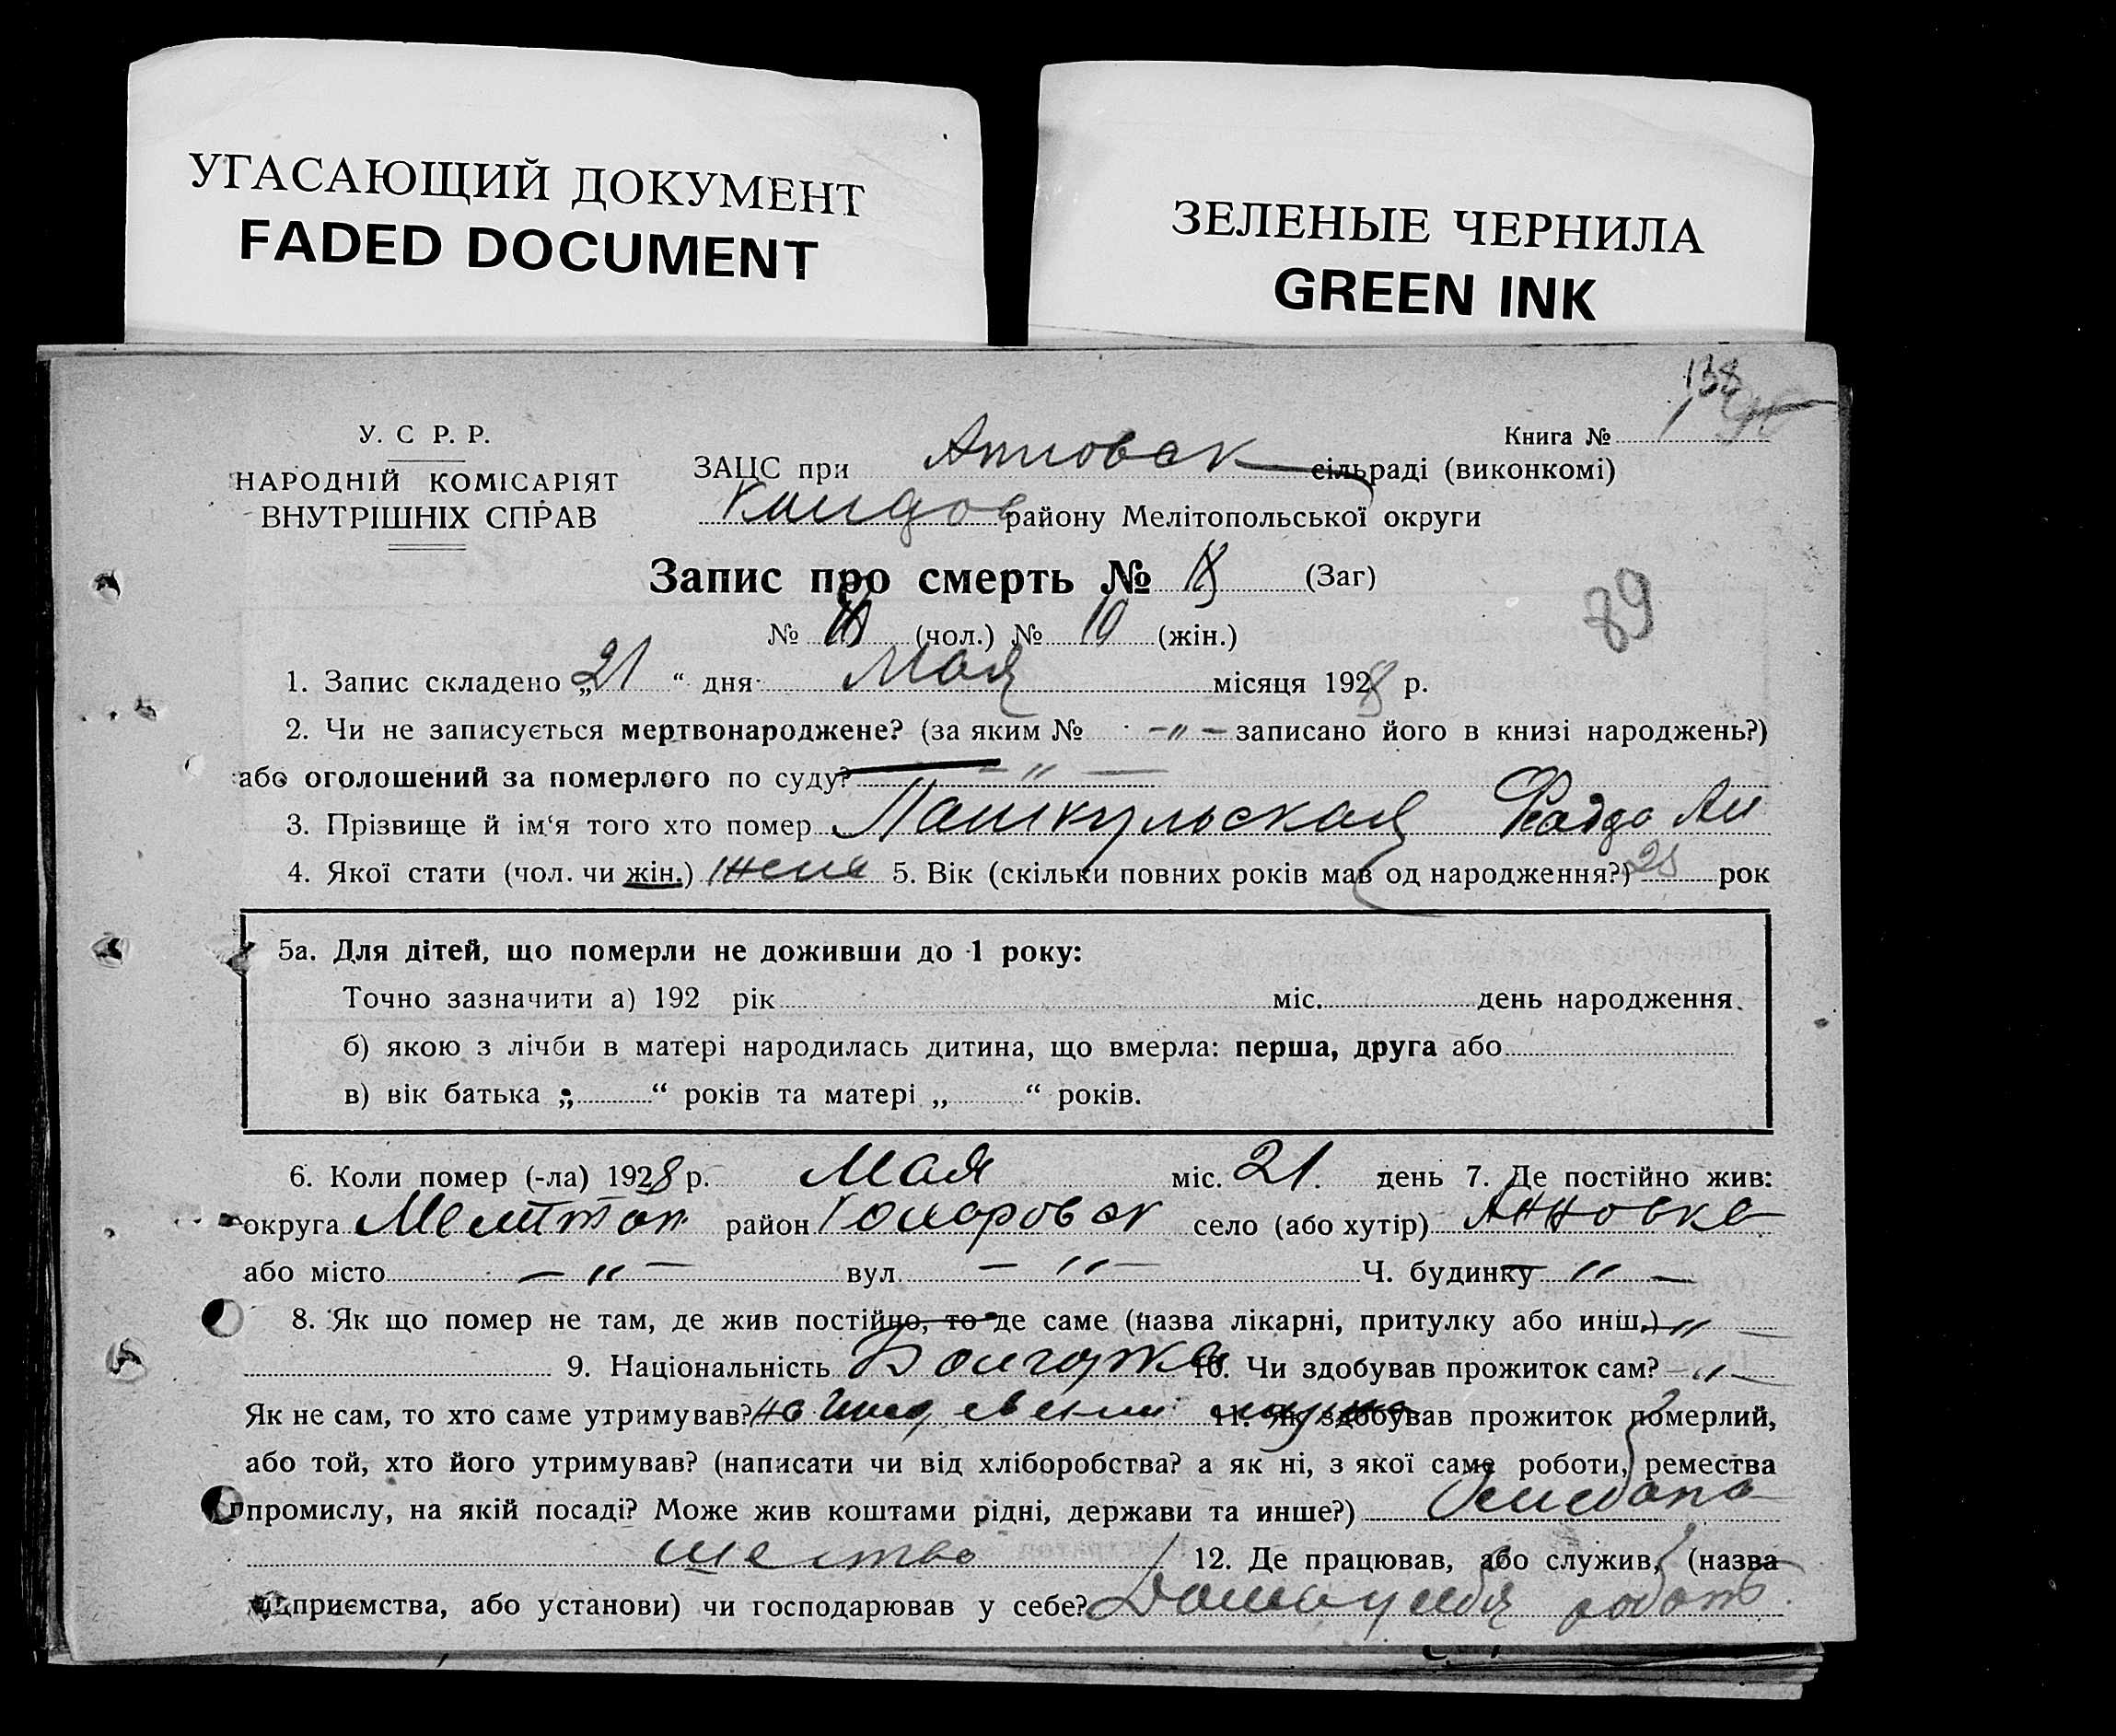 УГАСАЮЩИЙ ДОКУМЕНТ
FADED DOCUMENT
ЗЕЛЕНЫЕ ЧЕРНИЛА
GREEN INK
138
У. С Р. Р.
НАРОДНІЙ КОМІСАРІЯТ
ВНУТРІШНІХ СПРАВ
Книга №
ЗАЦС при Анновск сільраді (виконкомі)
району Мелітопольської округи
Запис про смерть № 18 (Заг)
89
№ (чол.) № 10 (жін.)
1. Запис складено „21“ дня Мая місяця 1928 р.
2. Чи не записується мертвонароджене? (за яким № -"- записано його в книзі народжень?)
або оголошений за померлого по суду? -"-
3. Прізвище й ім‘я того хто помер Пашкульская
4. Якої стати (чол. чи жін.) жена 5. Вік (скільки повних років мав од народження?) 25 рок
5а. Для дітей, що померли не доживши до 1 року:
Точно зазначити а) 192 рік міс. день народження.
б) якою з лічби в матері народилась дитина, що вмерла: перша, друга або
в) вік батька „ “ років та матері „ “ років.
6. Коли помер (-ла) 1928 р. Мая міс. 21. день 7. Де постійно жив:
округа Мелитоп район село (або хутір) Анновка
або місто -"- вул. -"- Ч. будинку -"-
8. Як що помер не там, де жив постійно, то де саме (назва лікарні, притулку або инш.) -"-
9. Національність Болгарка 10. Чи здобував прожиток сам? -"-
Як не сам, то хто саме утримував? на иждевении мужа 11. Як здобував прожиток померлий,
або той, хто його утримував? (написати чи від хліборобства? а як ні, з якої саме роботи, ремества
промислу, на якій посаді? Може жив коштами рідні, держави та инше?)
12. Де працював, або служив, (назва
підприємства, або установи) чи господарював у себе? Дома у себя работ